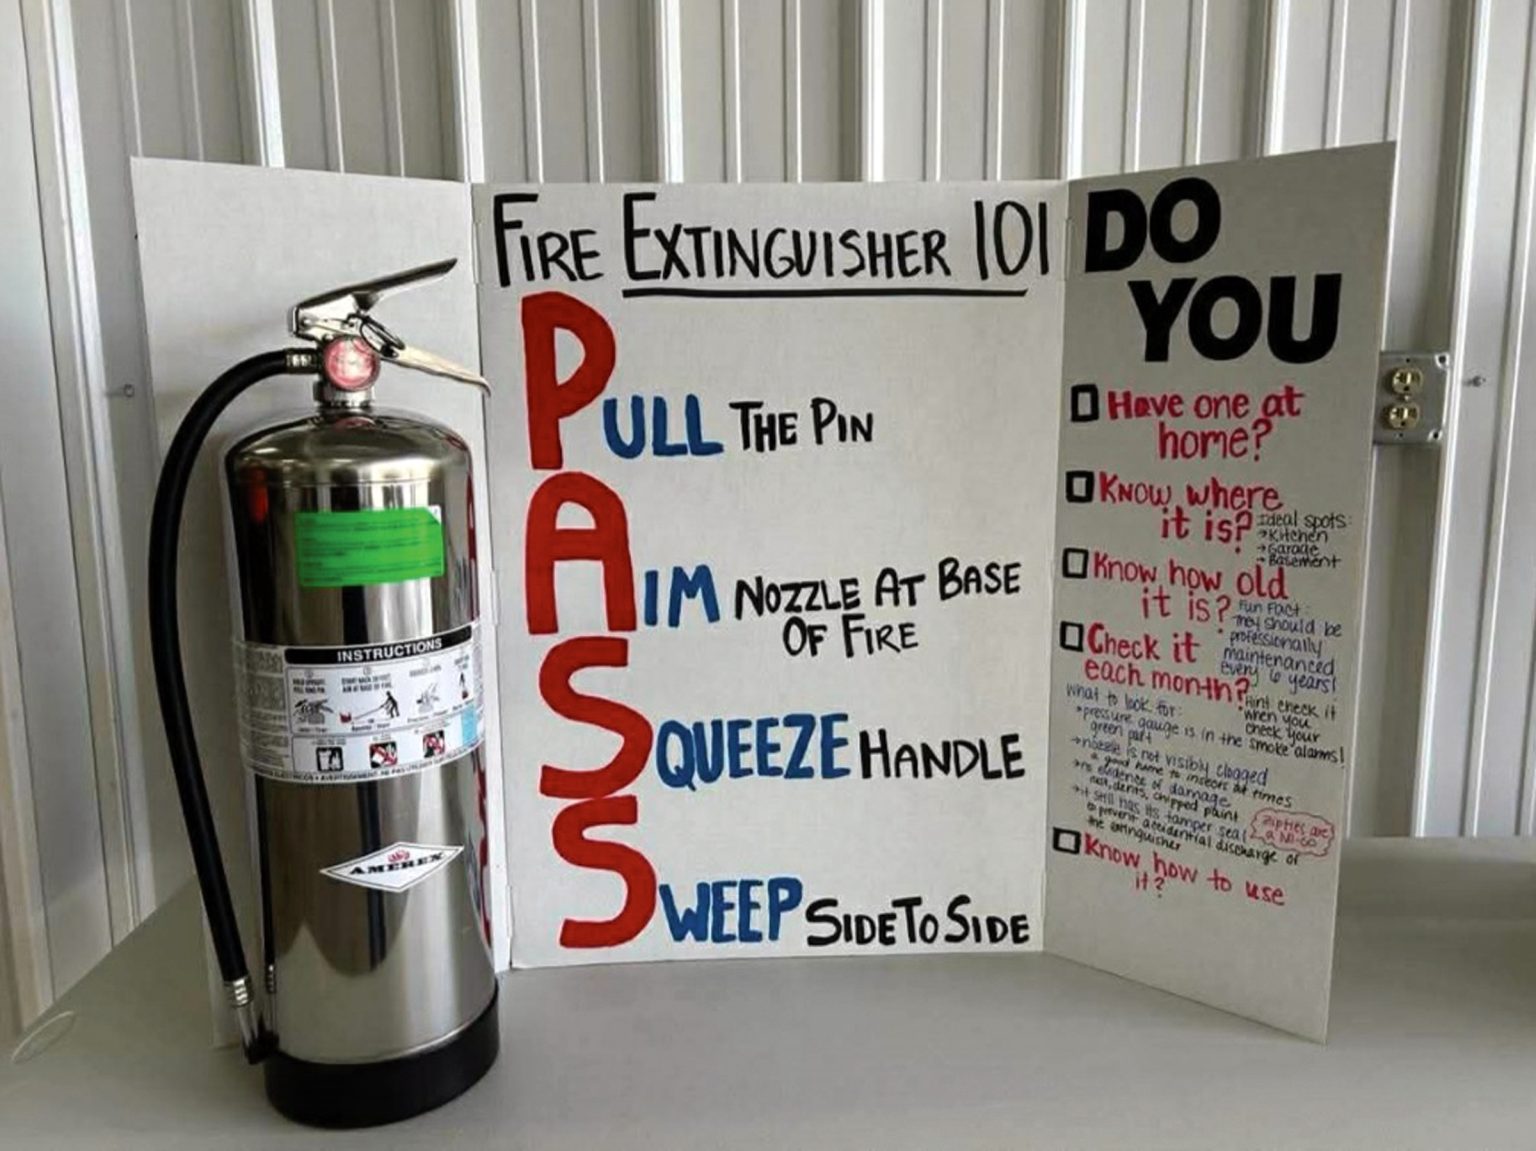 FIRE EXTINGUISHER 101
PULL THE PIN
AIM NOZZLE AT BASE
OF FIRE
SQUEEZE HANDLE
SWEEP SIDE TO SIDE
DO
YOU
Have one at
home?
Know where
it is?
Ideal spots:
→Kitchen
→Garage
→Basement
Know how old
it is?
Fun Fact:
They should be
professionally
maintenanced
every 6 years!
Check it
each month?
Hint check it
when you
check your
smoke alarms!
What to look for:
pressure gauge is in the
green part
→nozzle is not visibly clogged
a good home to insects at times
→no evidence of damage
dents, chipped paint
→it still has its tamper seal
to prevent accidential discharge of
the extinguisher
Zipties are
a NO-GO
Know how to use
it?
INSTRUCTIONS
AMEREX